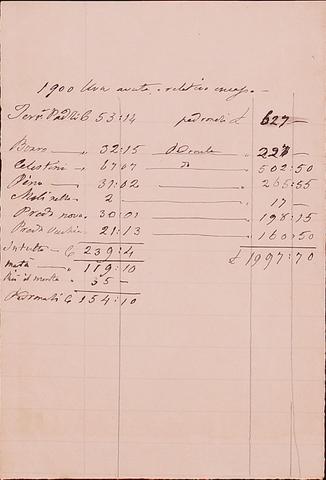 1900 Uva avuta e relativo incasso. —
Terr. Padli C 53:14 padronali £ 627 —
Boaro — „ 32:15 — d Decate — „ 227 —
Celestini — „ 67 07 — D — „ 502:50
Pena — „ 31:02 — „ 265:55
Molinella — „ 2 — — „ 17 —
Prada nova „ 30 01 — „ 198:15
Prada Vecchia „ 21:13 — „ 160:50
In tutto — C 239:4 £ 1997:70
metà — „ 119:10
Più il monte „ 35 —
Padronali C 154:10